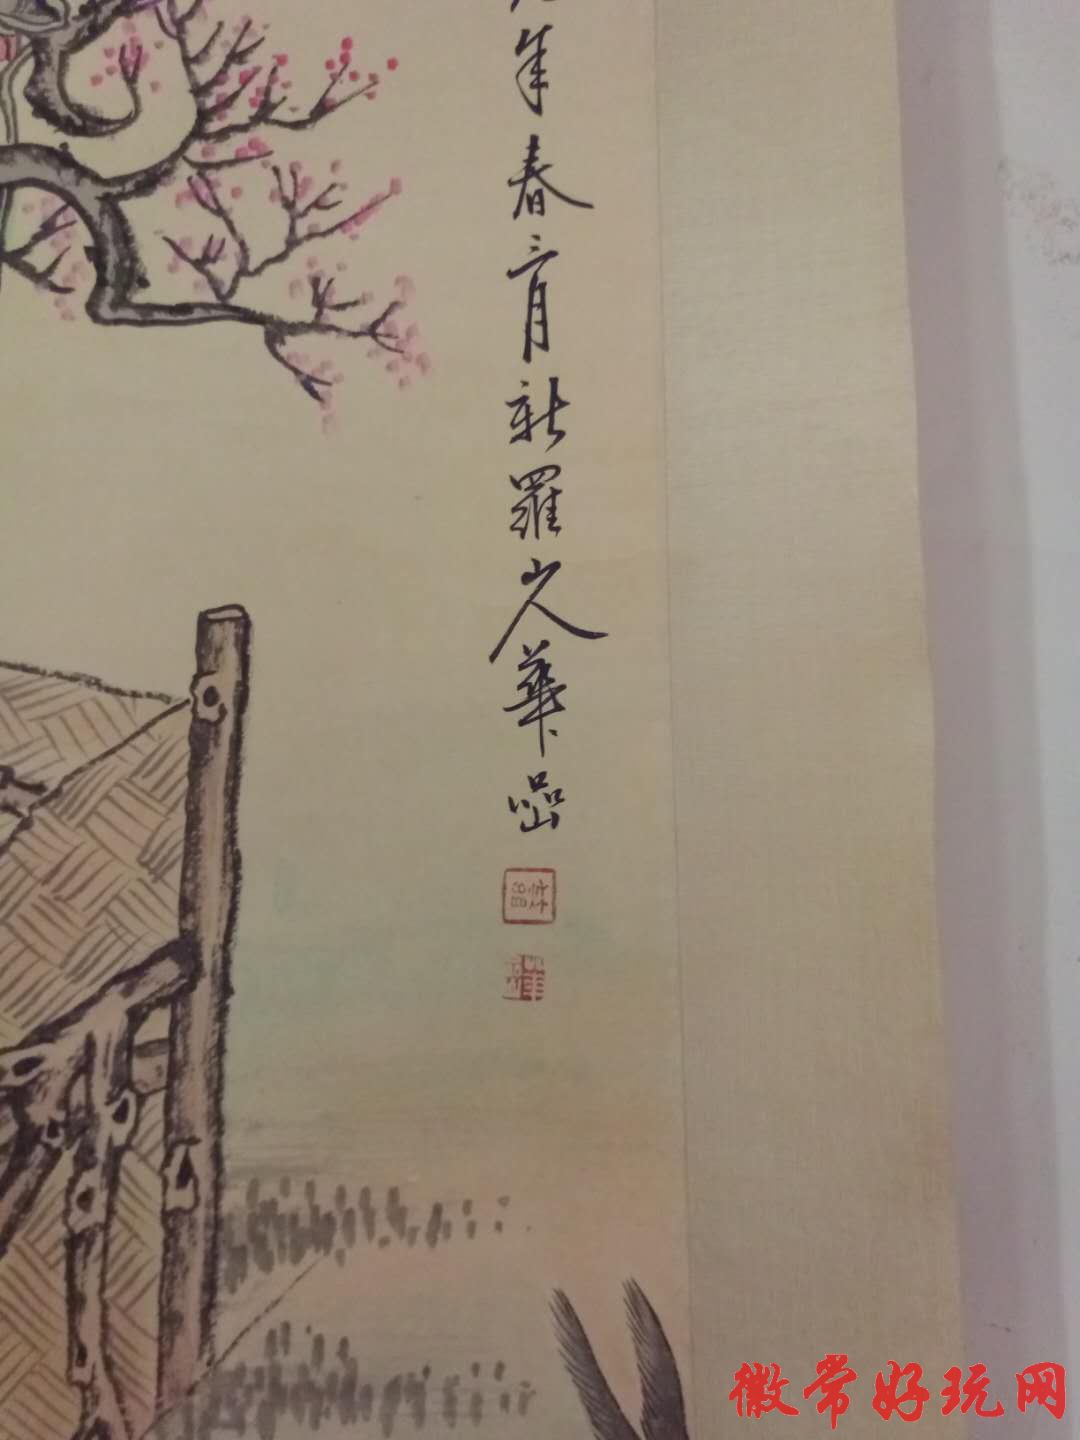 年春二月新羅山人華喦
徽常好玩网